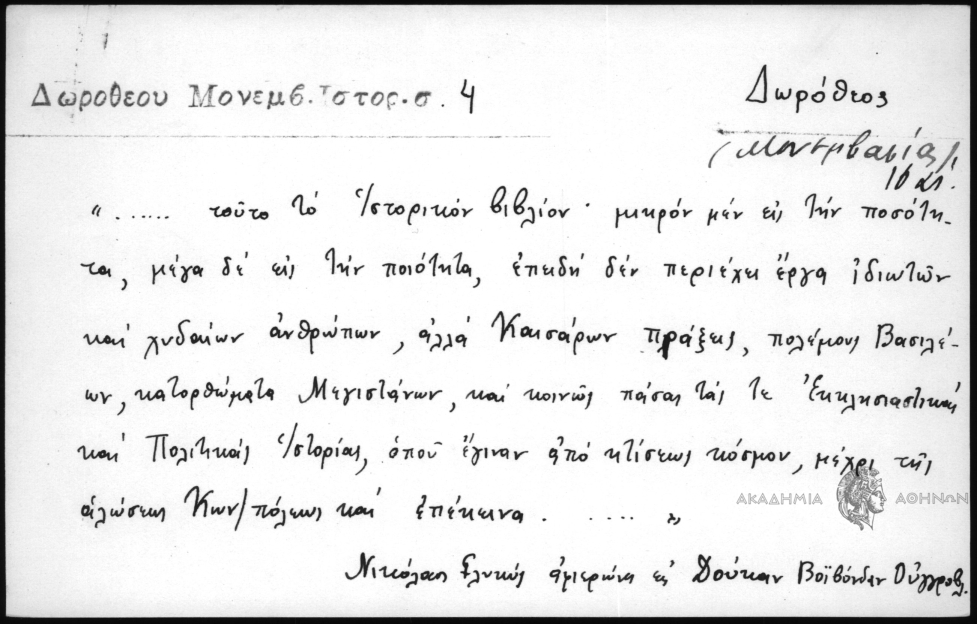 Δωροθεου Μονεμβ. Ἱστορ. σ. 4
Δωρόθεος
(Μονεμβασίας)
16 αἰ.
"...... τοῦτο τό Ἱστορικόν βιβλίον· μικρόν μέν εἰς τήν ποσότη-
τα, μέγα δέ εἰς τήν ποιότητα, ἐπειδή δέν περιέχει ἔργα ἰδιωτῶν
καί χυδαίων ἀνθρώπων, ἀλλά Καισάρων πράξεις, πολέμους Βασιλέ-
ων, κατορθώματα Μεγιστάνων, καί κοινῶς πάσας τάς τε Ἐκκλησιαστικάς
καί Πολιτικάς Ἱστορίας, ὁποῦ ἔγιναν ἀπό κτίσεως κόσμου, μέχρι τῆς
ἁλώσεως Κων/πόλεως καί ἐπέκεινα. ..... "
ΑΚΑΔΗΜΙΑ ΑΘΗΝΩΝ
Νικόλαος Γλυκύς ἀφιερώνει εἰς Δούκαν Βοϊβόνδαν Οὐγγροβλ.